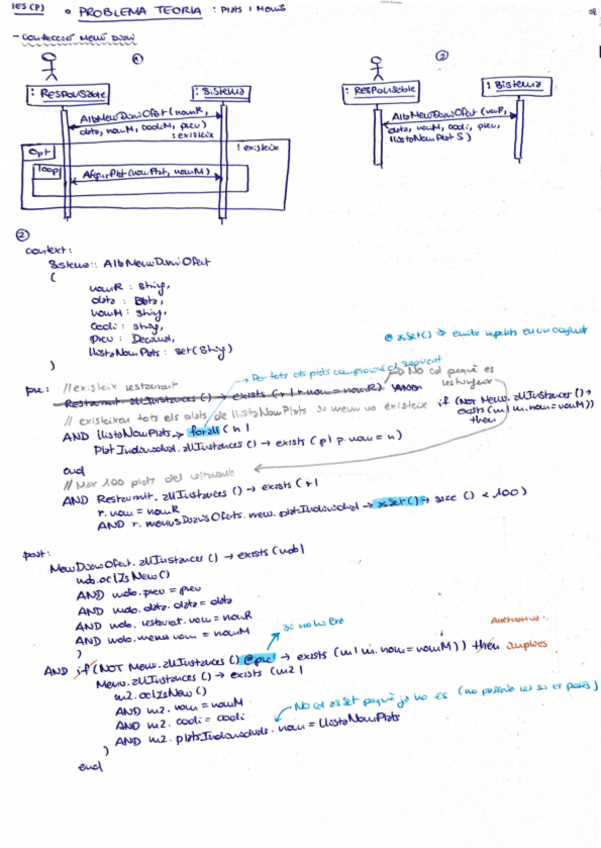 IES (P)
• PROBLEMA TEORIA : Plats i Menús
- CONFECCIÓ MENÚ DIARI
①
: Responsable
: Sistema
AltaMenuDiariOfert (nomR,
data, nomM, codiM, preu)
: existeix
opt
! existeix
loop
AfegirPlat (nomPlat, nomM)
②
: Responsable
: Sistema
AltaMenuDiariOfert (nomR,
data, nomM, codi, preu,
llistaNomPlats)
②
context:
Sistema :: AltaMenuDiariOfert
(
nomR : String,
data : Data,
nomM : String,
codi : String,
preu : Decimal,
llistaNomPlats : set(String)
)
asSet() ⇒ evita repetits en un conjunt
Per tots els plats comprovem el següent
No cal perquè es
pre: // existeix restaurant
Restaurant.allInstances() → exists (r | r.nom = nomR)
// existeixen tots els plats de llistaNomPlats si menu no existeix
if (NOT Menu.allInstances() →
exists (m | m.nom = nomM))
then
AND llistaNomPlats → forall (n |
PlatIndividual.allInstances() → exists (p | p.nom = n)
end
// Max 100 plats del restaurant
AND Restaurant.allInstances() → exists (r |
r.nom = nomR
AND r.menusDiarisOferts.menu.platIndividual → asSet() → size() < 100)
post:
MenuDiariOfert.allInstances() → exists (mdo |
mdo.oclIsNew()
AND mdo.preu = preu
AND mdo.data.data = data
AND mdo.restaurant.nom = nomR
AND mdo.menu.nom = nomM
)
si no hi era
Alternativa:
AND if (NOT Menu.allInstances() @pre → exists (m | m.nom = nomM)) then implies
Menu.allInstances() → exists (m2 |
m2.oclIsNew()
AND m2.nom = nomM
AND m2.codi = codi
No cal asSet perquè ja ho és
AND m2.platsIndividuals.nom = llistaNomPlats
)
end